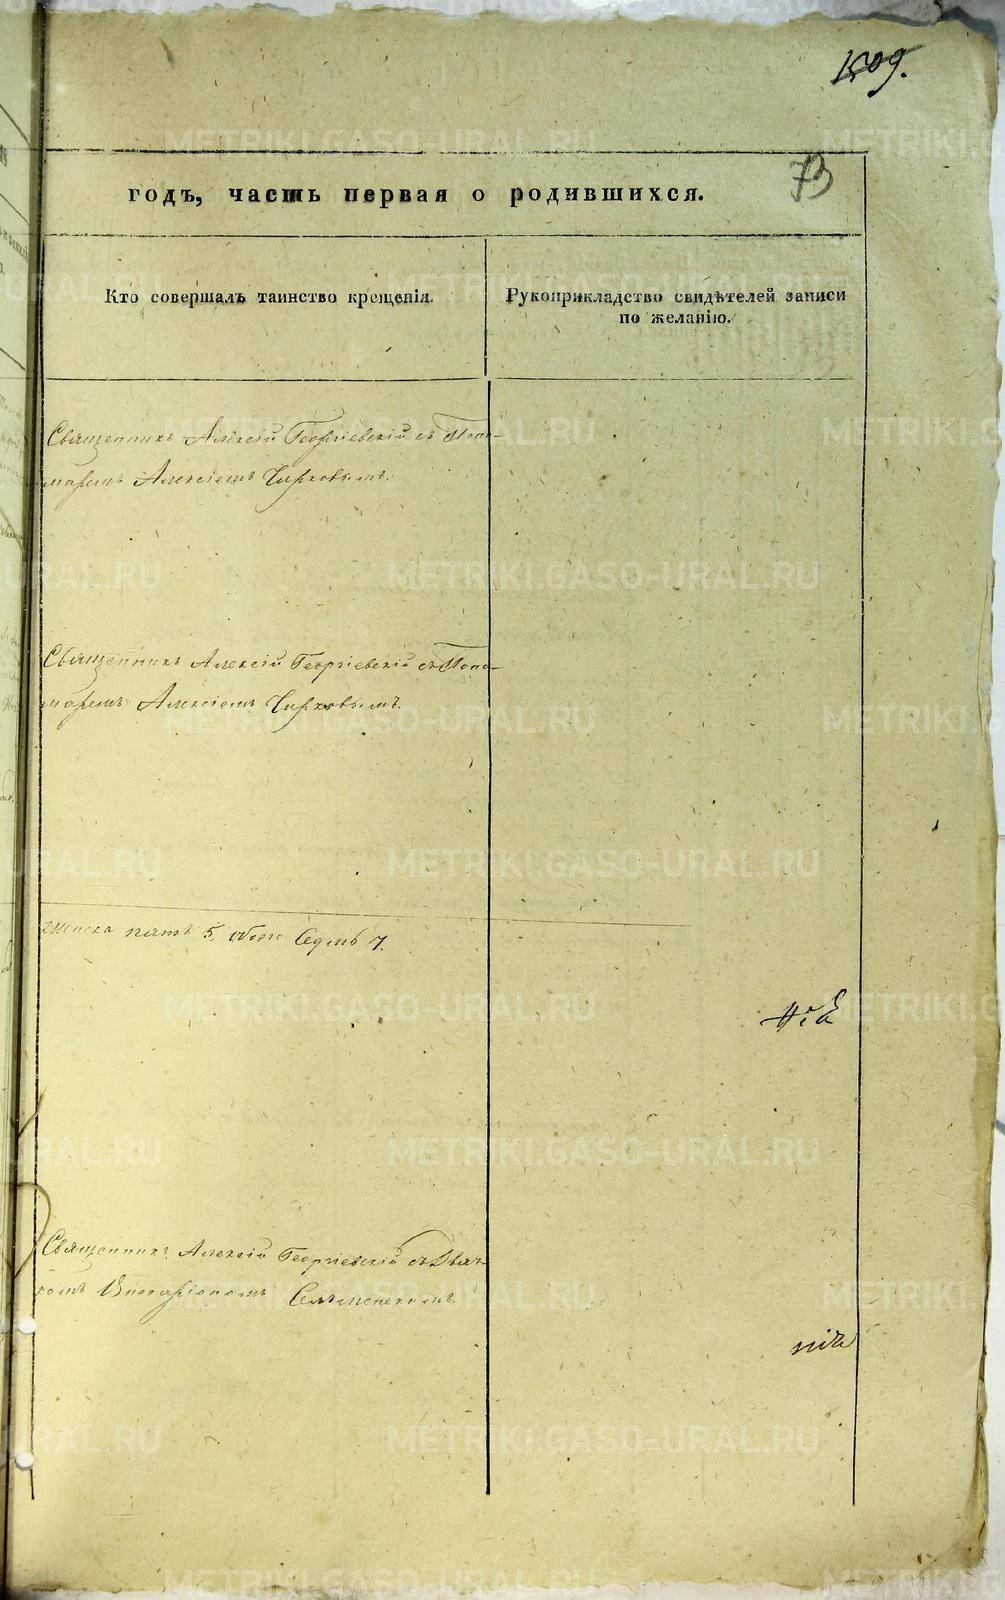 1509.
73
годъ, часть первая о родившихся.
Кто совершалъ таинство крещенія.
Рукоприкладство свидѣтелей записи
по желанію.
Священникъ Алексій Георгіевскій съ Поно-
маремъ Алексіемъ Чирковымъ.
Священникъ Алексій Георгіевскій съ Поно-
маремъ Алексіемъ Чирковымъ.
женска пять 5, обоего Седмь 7.
Священникъ Алексій Георгіевскій съ Дьяч-
комъ Виссаріономъ
METRIKI.GASO-URAL.RU